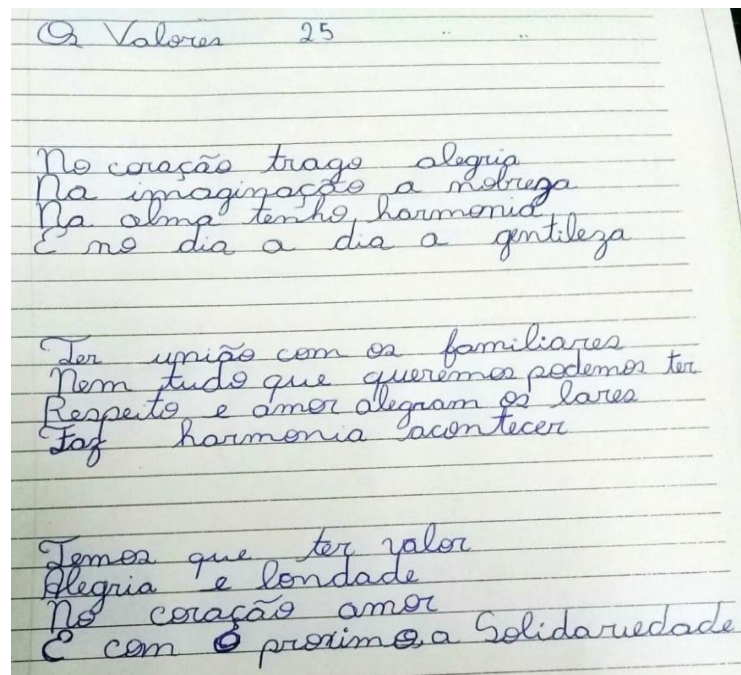 Os Valores 25
No coração trago alegria
Na imaginação a nobreza
Na alma tenho harmonia
E no dia a dia a gentileza
Ter união com os familiares
Nem tudo que queremos podemos ter
Respeito e amor alegram os lares
Faz harmonia acontecer
Temos que ter valor
Alegria e bondade
No coração amor
E com o proximo a Solidariedade